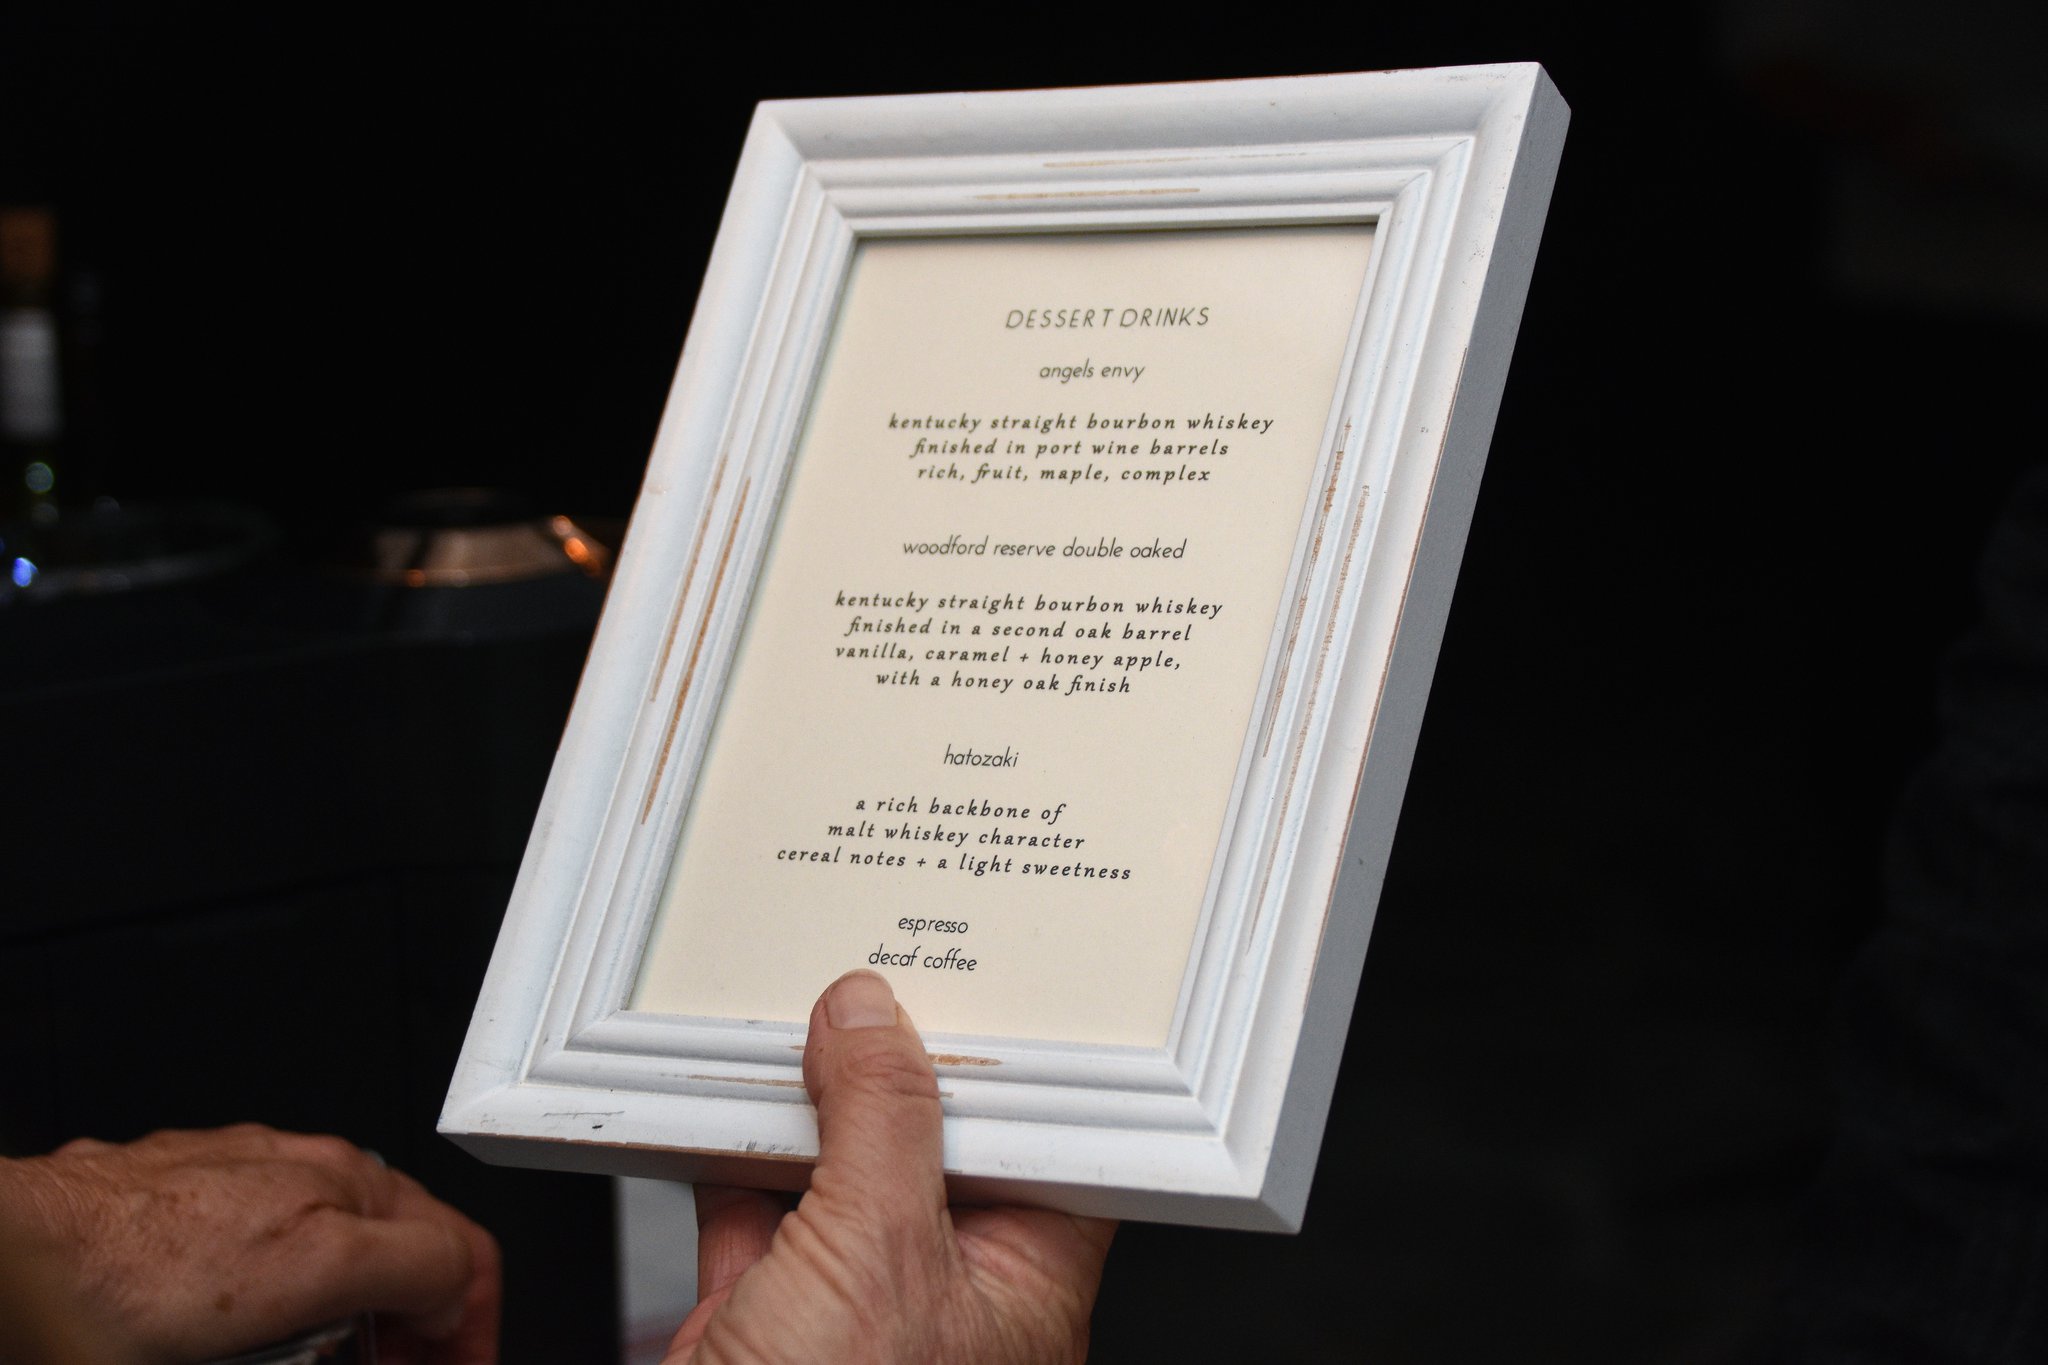 DESSERT DRINKS
angels envy
kentucky straight bourbon whiskey
finished in port wine barrels
rich, fruit, maple, complex
woodford reserve double oaked
kentucky straight bourbon whiskey
finished in a second oak barrel
vanilla, caramel + honey apple,
with a honey oak finish
hatozaki
a rich backbone of
malt whiskey character
cereal notes + a light sweetness
espresso
decaf coffee